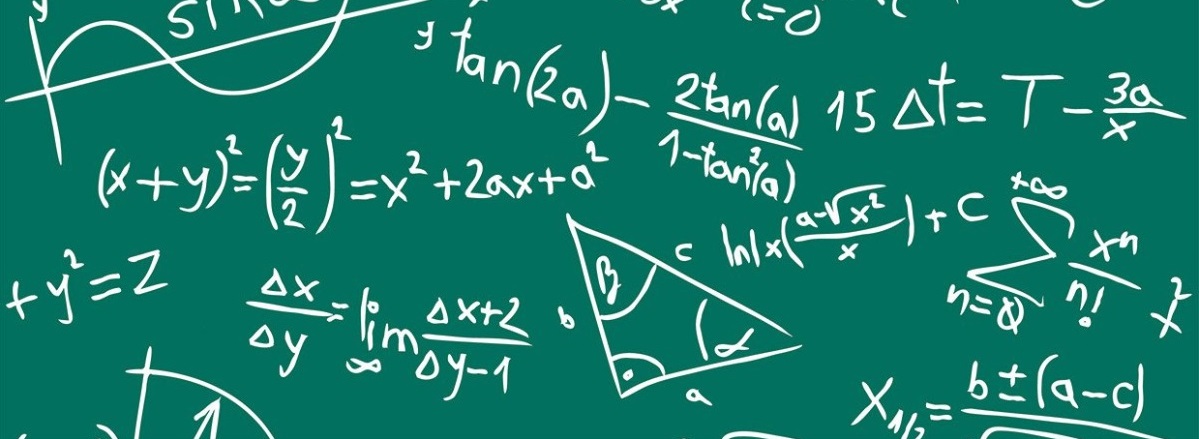 y
i=0
y tan(2a) - 2tan(a)/1-tan²(a)
15 Δt = T - 3a/x
(x+y)² = (y/2)² = x² + 2ax + a²
ln|x(a-√x²/x)+C
+∞ Σ n=0 xⁿ/n!
x²
+y² = Z
Δx/Δy = lim ∞ Δx+2/Δy-1
β
c
b
α
a
X₁/₂ = b±(a-c)